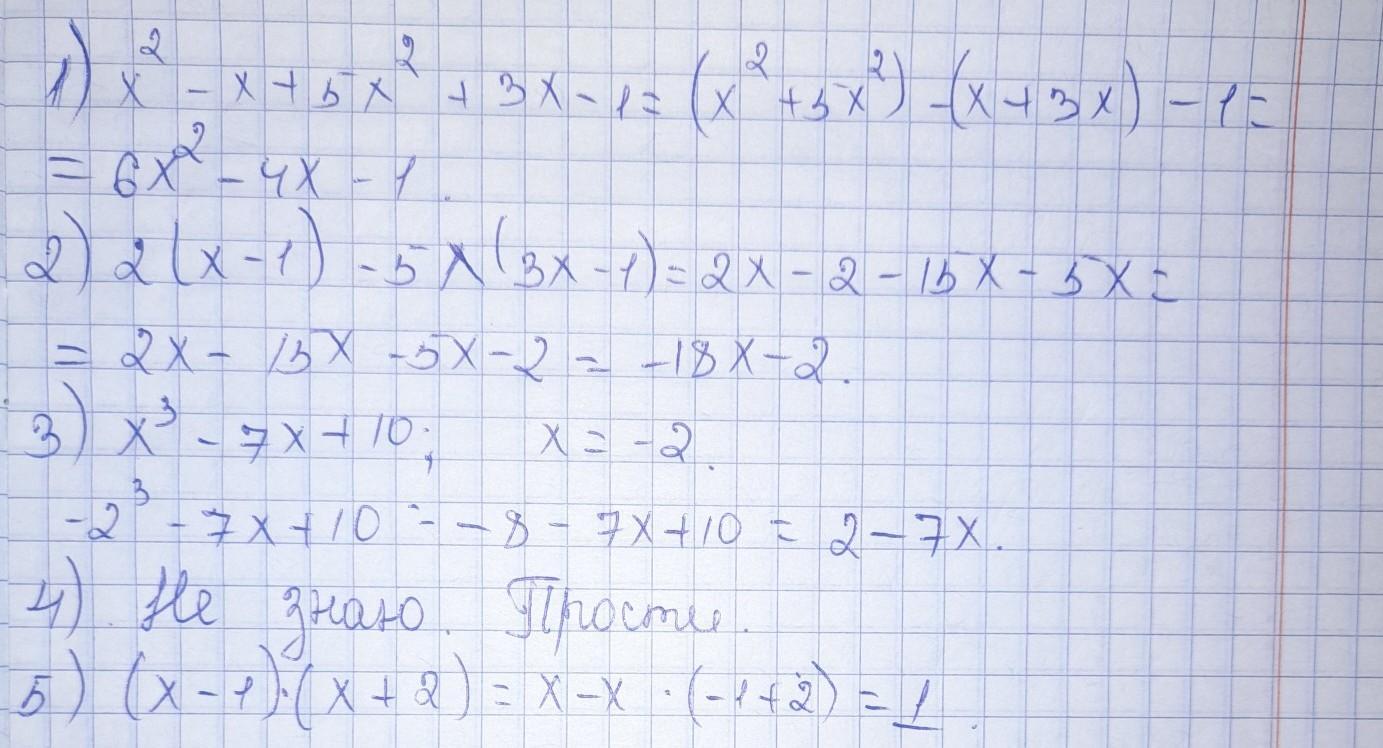 1) x² - x + 5x² + 3x - 1 = (x² + 5x²) - (x + 3x) - 1 =
= 6x² - 4x - 1.
2) 2(x - 1) - 5x(3x - 1) = 2x - 2 - 15x - 5x =
= 2x - 15x - 5x - 2 = -18x - 2.
3) x³ - 7x + 10; x = -2.
-2³ - 7x + 10 = -8 - 7x + 10 = 2 - 7x.
4) Не знаю. Прости.
5) (x - 1)·(x + 2) = x - x · (-1 + 2) = 1.